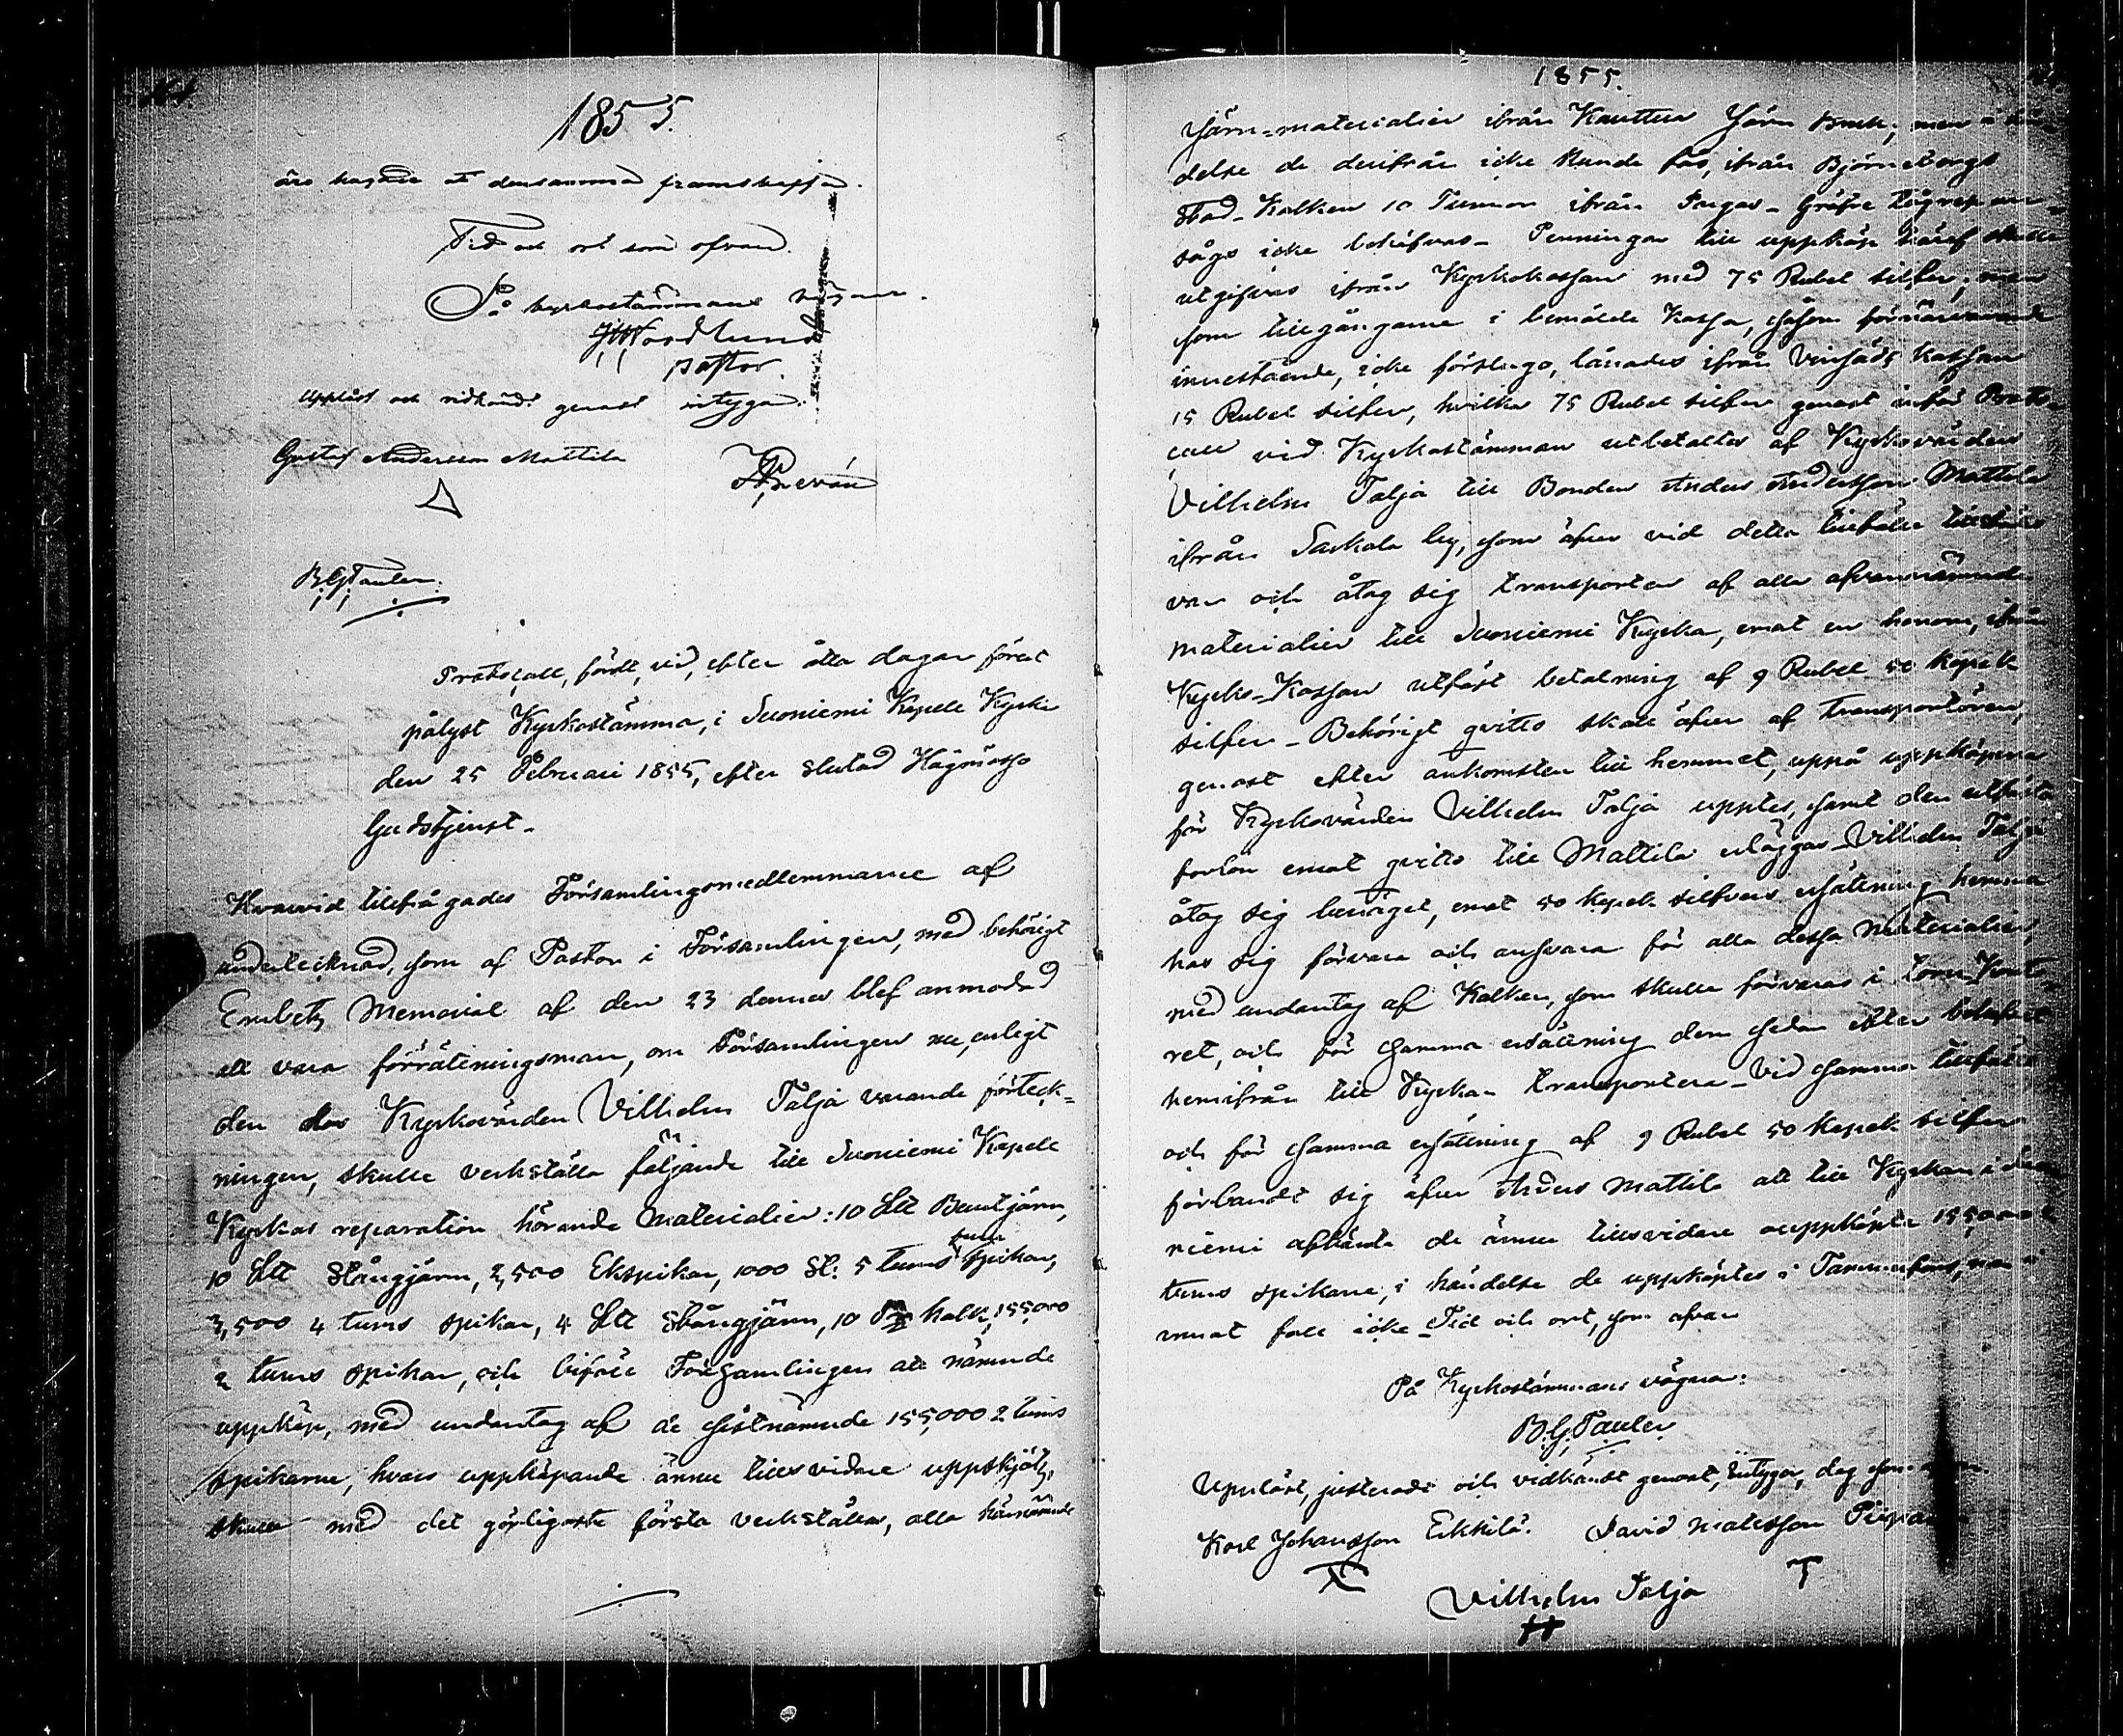 1855.
äro hugade att densamma framskaffa.
Tid och ort som ofvan.
På kyrkostämmans vägnar.
Nordlund
pastor.
Uppläst och vidkändt genast intygar.
Gustaf Andersson Mattila
B.G. Tauler.
Protocoll, fördt, vid, efter åtta dagar förut
pålyst Kyrkostämma, i Suoniemi Kapell Kyrka
den 25 Februari 1855, efter slutad Högmässo
Gudstjenst.
Hvarvid tillfrågades Församlingsmedlemmarne af
undertecknad, som af Pastor i Församlingen, med behörigt
Embets Memorial af den 23 dennes blef anmodad
att vara förrättningsman, om Församlingen nu, enligt
den hos Kyrkovärden Vilhelm Talja varande förteck=
ningen, skulle verkställa följande till Suoniemi Kapell
Kyrkas reparation hörande Materialier: 10 L℔ Bandtjärn,
10 L℔ Stångjärn, 2,500 Ekspikar, 1000 St: 5 tums spikar,
3,500 4 tums spikar, 4 L℔ Stångjärn, 10 Tnr kalk, 155,000
2 tums spikar, och biföll Församlingen att nämnde
uppköp, med undantag af de sistnämnde 155,000 2 tums
spikarne, hvars uppköpande ännu tillsvidare uppskjöts,
skulle med det görligaste första verkställas, alla härnämnde
1855.
Järn=materialier ifrån Kauttua Järn Bruk; men i hän
delse de derifrån icke kunde fås, ifrån Björneborgs
Stad. Kalken 10 Tunnor ifrån Pargas. Gröfre tågrep an-
sågs icke behöfvas. Penningar till uppköp häraf skulle
utgifvas ifrån Kyrkokassan med 75 Rubel silfver; men
som tillgångarne i bemälde Kassa, såsom förnärvarande
innestående, icke förslogo, lånades ifrån Vinsäds kassan
15 Rubel silfver, hvilka 75 Rubel silfver genast inför Proto-
coll vid Kyrkostämman utbetaltes af Kyrkovärden
Vilhelm Talja till Bonden Anders Andersson Mattila
ifrån Sarkola by, som äfven vid detta tillfälle tillstädes
var och åtog sig transporten af alla ofvannämnde
materialier till Suoniemi Kyrka, emot en honom, ifrån
Kyrko-Kassan utfäst betalning af 9 Rubel 50 kopek
silfver. Behörigt qvitto skall äfven af transportören,
genast efter ankomsten till hemmet, uppå uppköpena
för Kyrkovärden Vilhelm Talja upptes, samt den utfästa
forlön emot qvitto till Mattila erläggas. Vilhelm Talja
åtog sig benäget, emot 50 kopek silfvers ersättning hemma
hos sig förvara och ansvara för alla dessa Materialier,
med undantag af Kalken, som skulle förvaras i
ret, och för samma ersättning dem sedan efter behofvet
hemifrån till Kyrkan transportera. Vid samma tillfälle
och för samma ersättning af 9 Rubel 50 kopek silfver
förband sig äfven Anders Mattila att till Kyrkan i Suo
niemi afhämta de ännu tillsvidare ouppköpta 155,000 2
tums spikarne, i händelse de uppköptes i Tammerfors, men i
annat fall icke. Tid och ort, som ofvan
På Kyrkostämmans vägnar:
B.G. Tauler
Uppläst, justeradt och vedkändt genast, intygar, dag som ofvan.
Karl Johansson Erkkilä. David Matsson
Vilhelm Talja